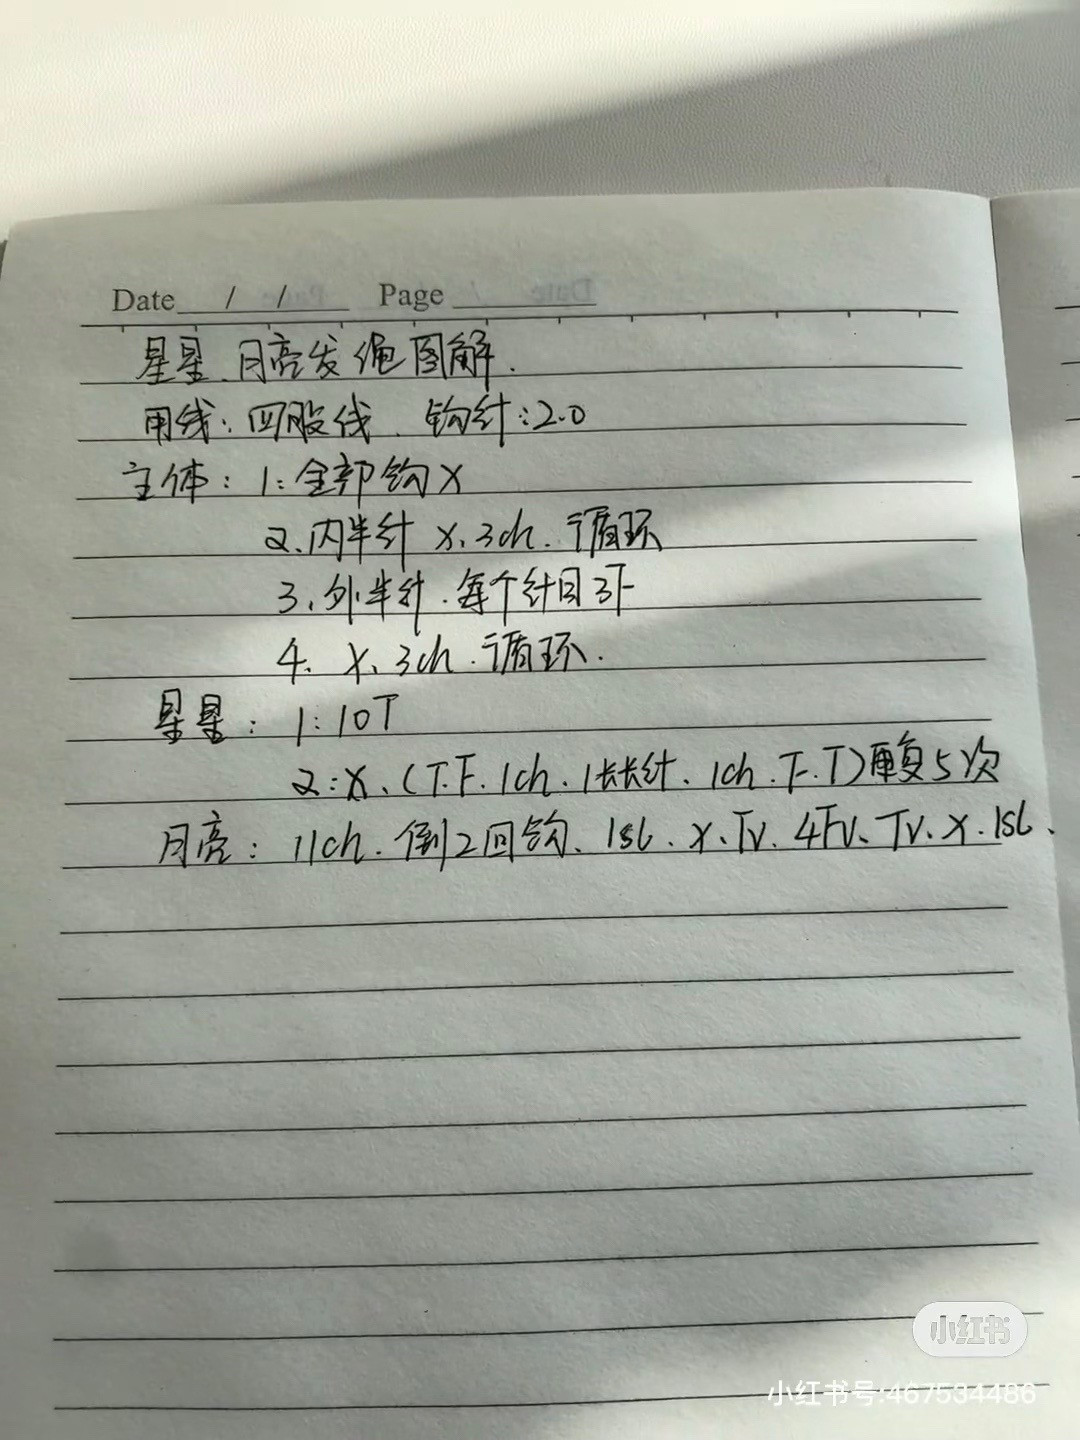 Date / / Page
星星、月亮发绳图解.
用线：四股线、钩针：2.0
主体：1：全部钩X
2、内半针 X、3ch、循环
3、外半针、每个针目3F
4、X、3ch、循环.
星星：1：10T
2：X、(T.F、1ch、1长长针、1ch、F、T)重复5次
月亮：11ch、倒2回钩、1sl、X、Tv、4Fv、Tv、X、1sl、
小红书
小红书号:467534486